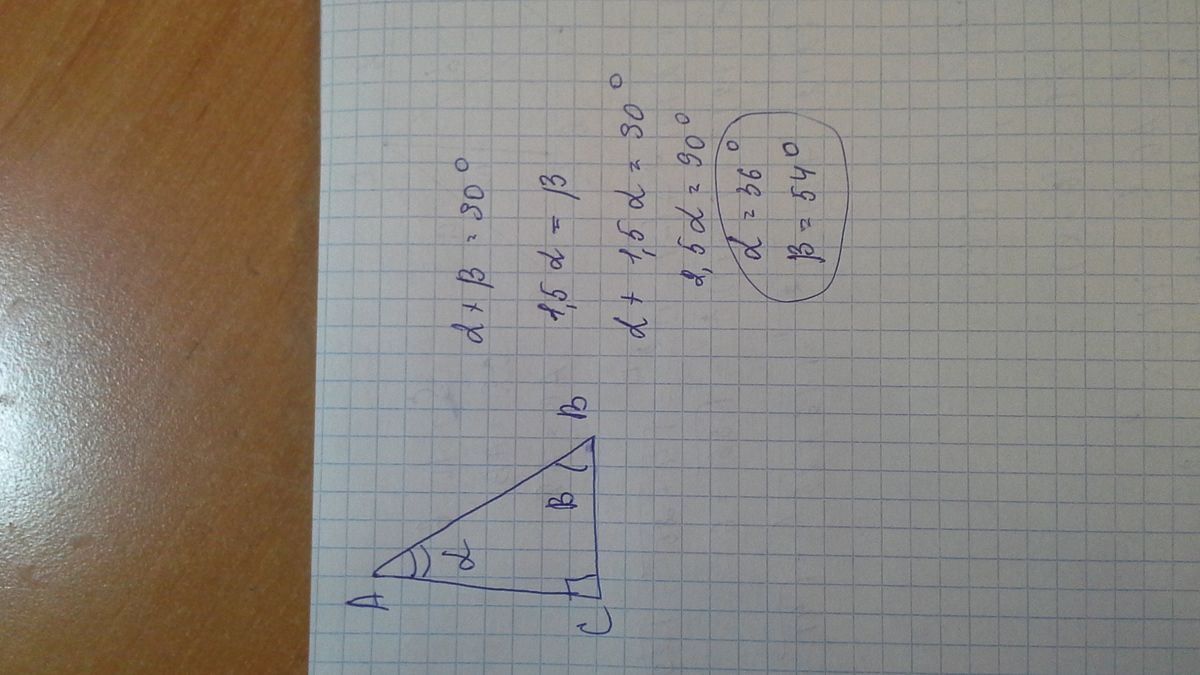 A
α
β
C
B
α + β = 90°
1,5α = β
α + 1,5α = 90°
2,5α = 90°
α = 36°
β = 54°